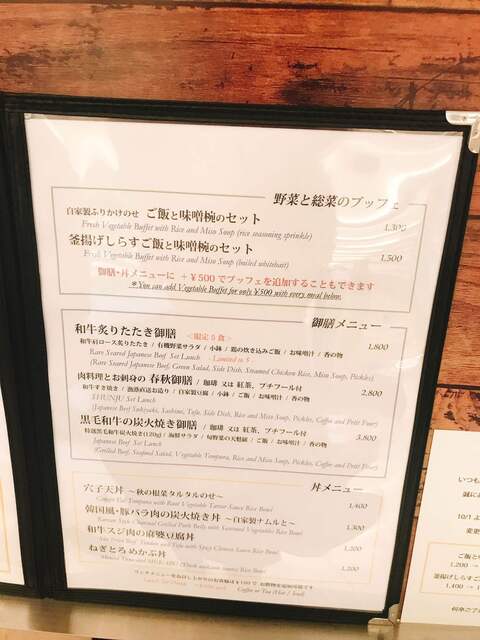 野菜と総菜のブッフェ
自家製ふりかけのせ ご飯と味噌椀のセット 1,300
Fresh Vegetable Buffet with Rice and Miso Soup (rice seasoning sprinkle)
釜揚げしらすご飯と味噌椀のセット 1,500
Fresh Vegetable Buffet with Rice and Miso Soup (boiled whitebait)
御膳・丼メニューに +¥500でブッフェを追加することもできます
*You can add Vegetable Buffet for only ¥500 with every meal below.
御膳メニュー
和牛炙りたたき御膳 <限定5食> 1,800
和牛肩ロース炙りたたき / 有機野菜サラダ / 小鉢 / 鶏の炊き込みご飯 / お味噌汁 / 香の物
Rare Seared Japanese Beef Set Lunch - Limited to 5 -
(Rare Seared Japanese Beef, Green Salad, Side Dish, Steamed Chicken Rice, Miso Soup, Pickles)
肉料理とお刺身の 春秋御膳 / 珈琲 又は 紅茶、プチフール付 2,800
和牛すき焼き / 漁港直送お造り / 自家製豆腐 / 小鉢 / ご飯 / お味噌汁 / 香の物
SHUNJU Set Lunch
(Japanese Beef Sukiyaki, Sashimi, Tofu, Side Dish, Rice and Miso Soup, Pickles, Coffee and Petit Four)
黒毛和牛の炭火焼き御膳 / 珈琲 又は 紅茶、プチフール付 3,800
特選黒毛和牛炭火焼き(120g) / 海鮮サラダ / 旬野菜の天麩羅 / ご飯 / お味噌汁 / 香の物
Japanese Beef Set Lunch
(Grilled Beef, Seafood Salad, Vegetable Tempura, Rice and Miso Soup, Pickles, Coffee and Petit Four)
丼メニュー
穴子天丼 ~秋の根菜タルタルのせ~ 1,400
Conger Eel Tempura with Root Vegetable Tartar Sauce Rice Bowl
韓国風・豚バラ肉の炭火焼き丼 ~自家製ナムルと~ 1,300
Korean Style Charcoal Grilled Pork Belly with Seasoned Vegetables Rice Bowl
和牛スジ肉の麻婆豆腐丼 1,200
with Spicy Chinese Sauce Rice Bowl
ねぎとろめかぶ丼 1,200
Coffee or Tea (Hot / Iced)
いつも
誠に
10/1よ
変更
ご飯と
1,200 →
釜揚げしらすご
1,400 →